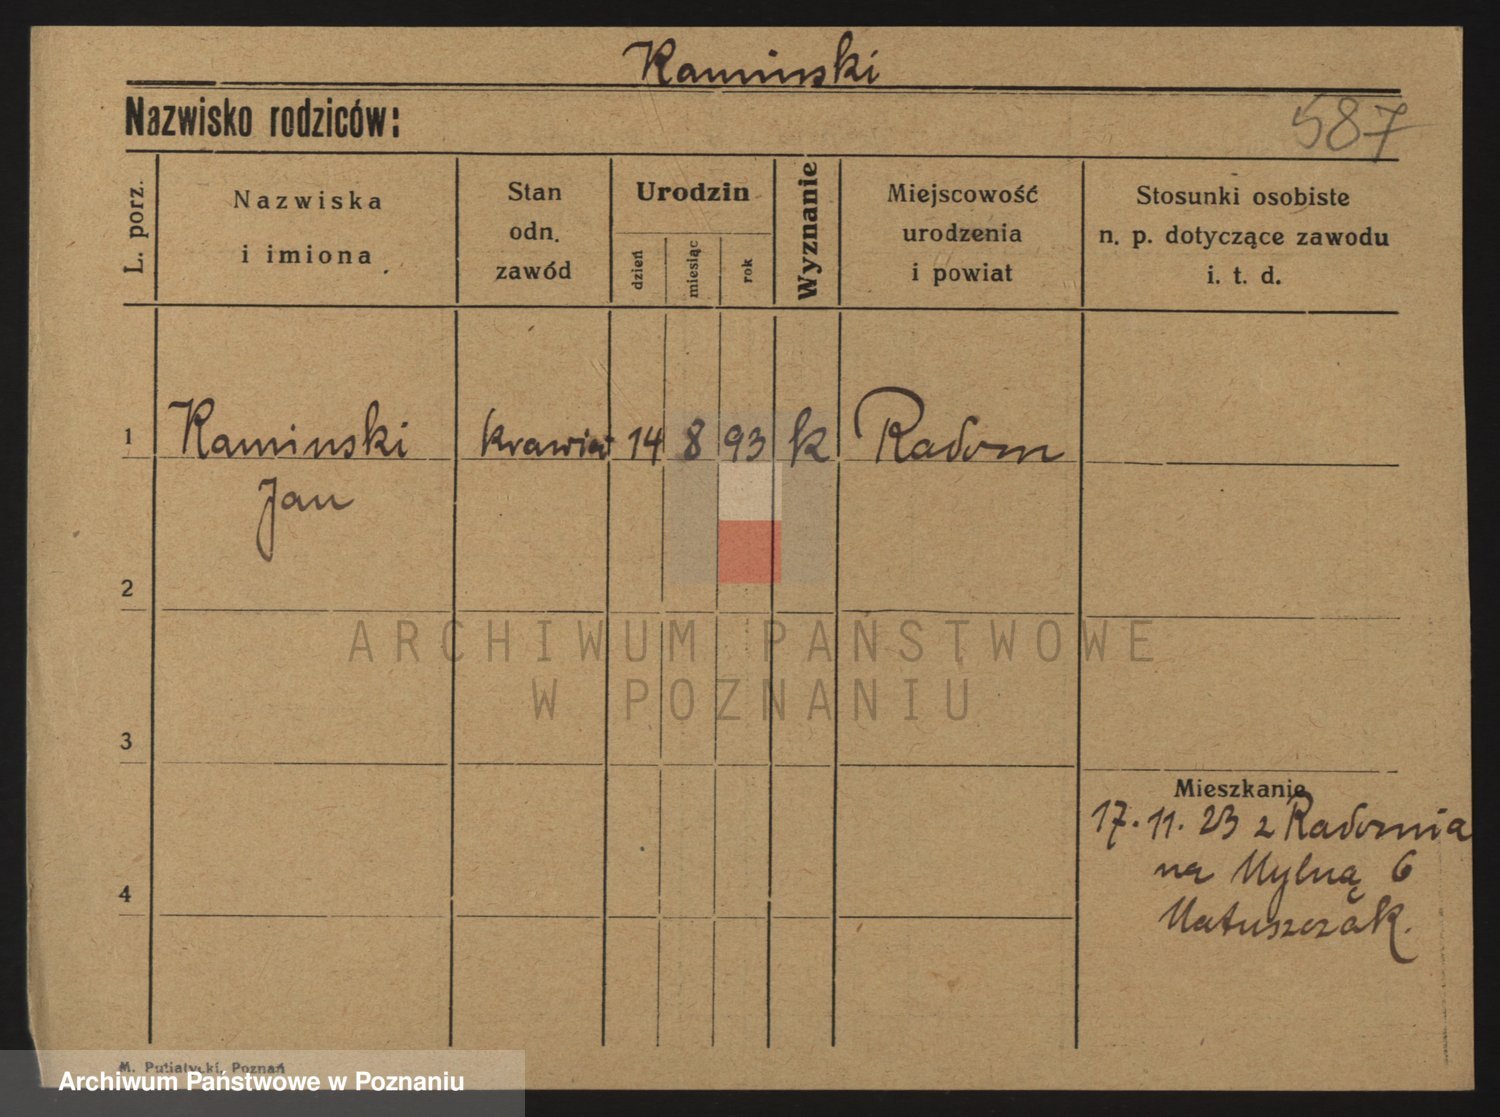 Kaminski
Nazwisko rodziców:
587
L. porz.
Nazwiska
i imiona
Stan
odn.
zawód
Urodzin
dzień
miesiąc
rok
Wyznanie
Miejscowość
urodzenia
i powiat
Stosunki osobiste
n. p. dotyczące zawodu
i. t. d.
1 Kaminski krawiec 14 8 93 k Radom
Jan
2
ARCHIWUM PAŃSTWOWE
W POZNANIU
3
Mieszkanie
17. 11. 23 z Radomia
na Mylną 6
4
Matuszczak.
M. Putiatycki, Poznań
Archiwum Państwowe w Poznaniu